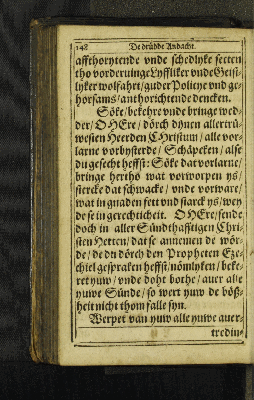 148 De drüdde Andacht.
affthorytende vnde schedlyke secten
tho vorderuinge Lyffliker vnde Geist-
lyker wolfahrt / guder Politye vnd ge-
horsams / anthorichtende dencken.
Söke / bekehre vnde bringe wed-
der / O HEre / dörch dynen allertrü-
westen Heerden Christum / alle vor-
larne vorbysterde / Schäpeken / alse
du gesecht heffst: Söke dat vorlarne /
bringe hertho wat vorworpen ys /
stercke dat schwacke / vnde vorware /
wat in gnaden fett vnd starck ys / wey
de se in gerechticheit. O HEre / sende
doch in aller Sündthafftigen Chri-
sten Herten / dat se annemen de wör-
de / de du dörch den Propheten Eze-
chiel gespraken heffst / nömlyken / beke-
ret yuw / vnde doht bothe / auer alle
yuwe Sünde / so wert yuw de böß-
heit nicht thom falle syn.
Werpet van yuw alle yuwe auer-
tredin-